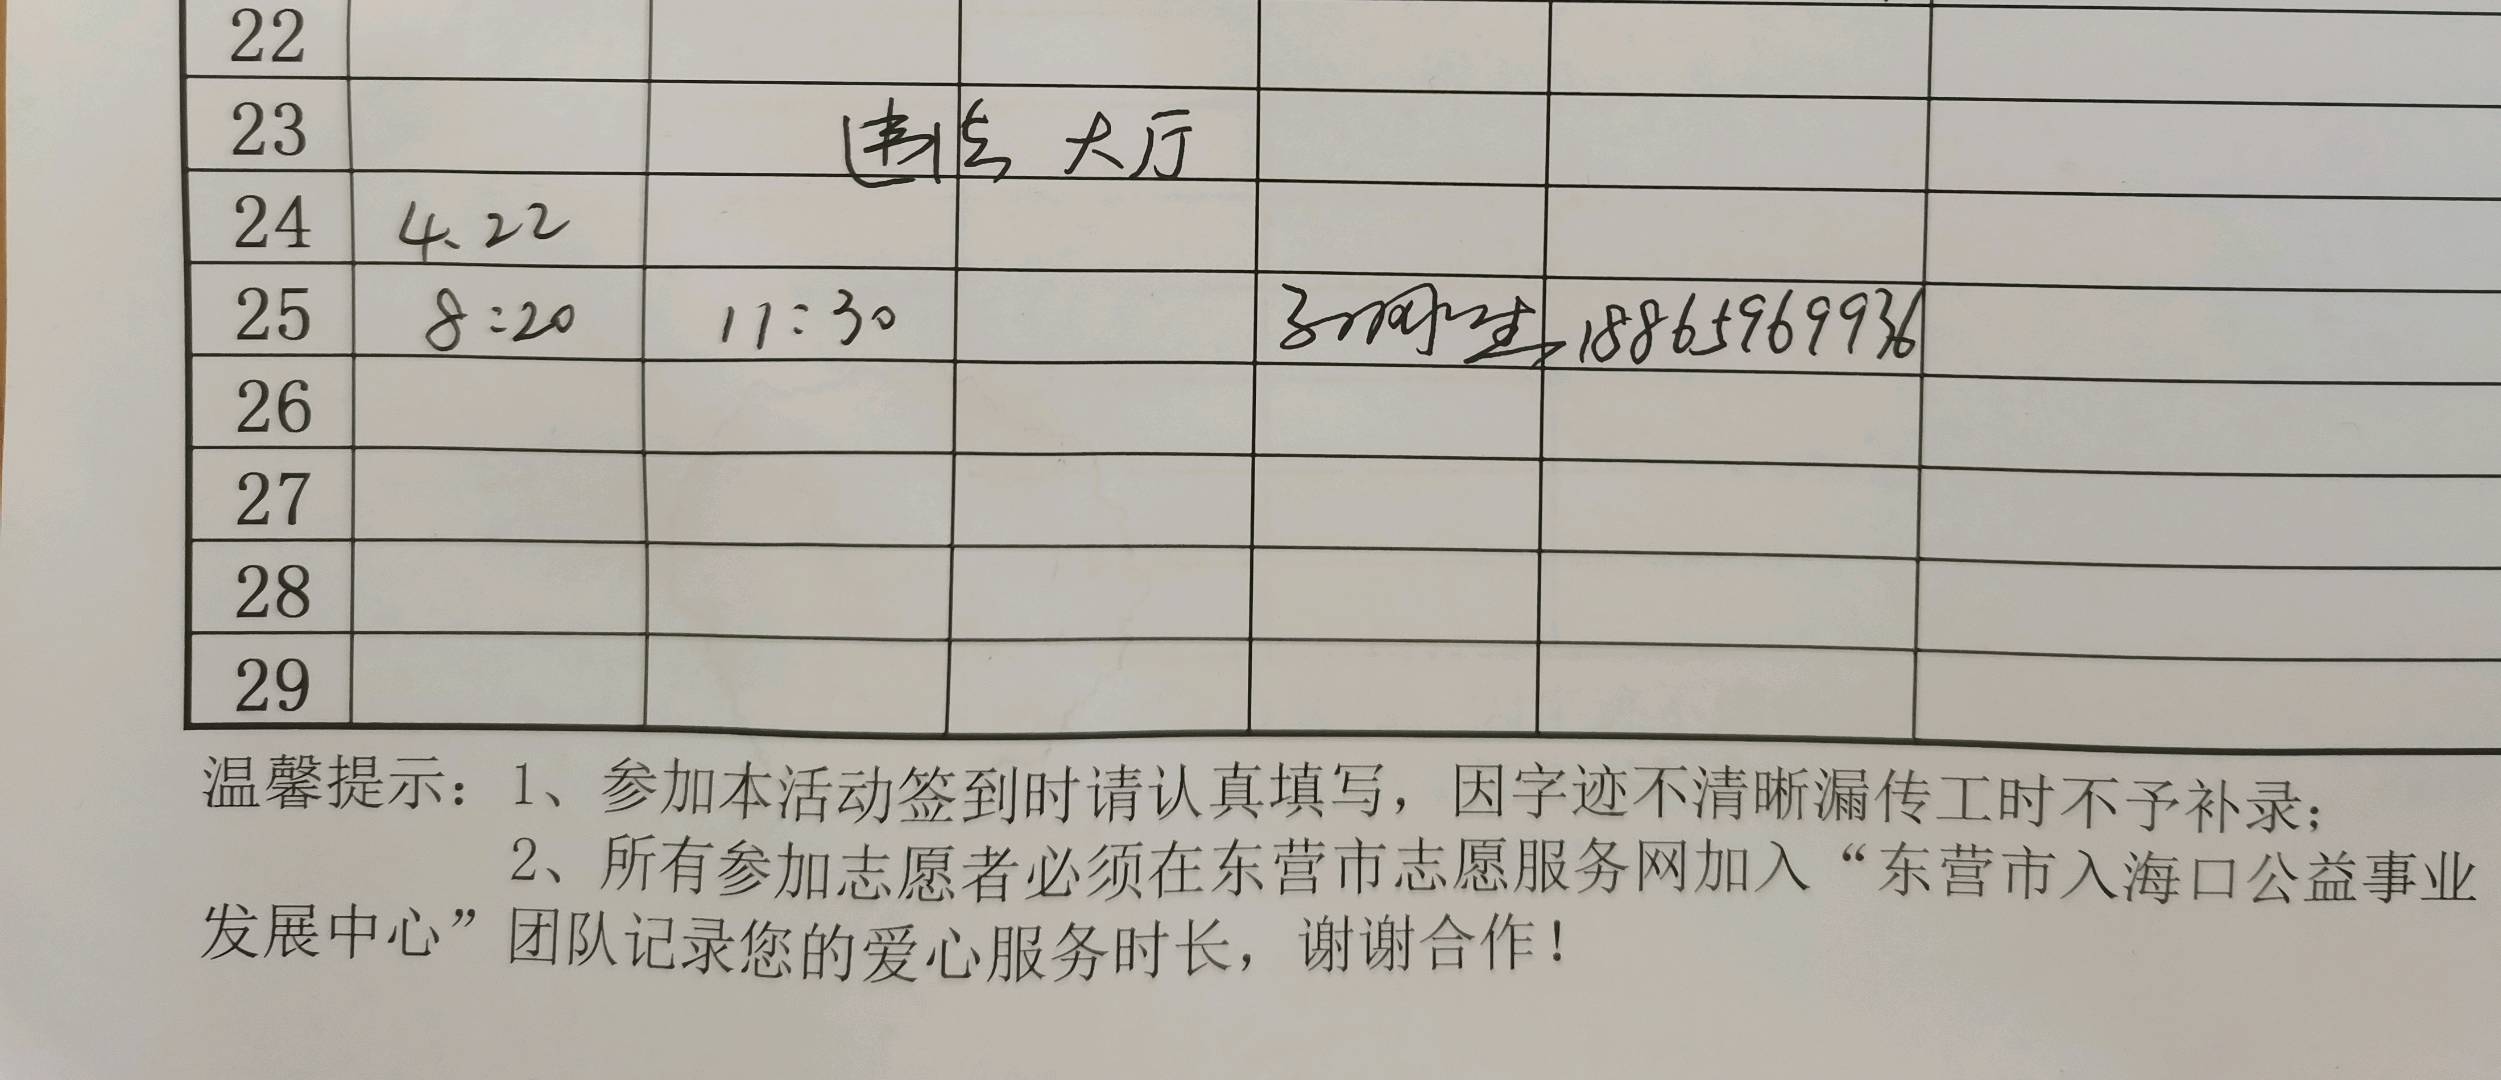 22
23 大厅
24 4、22
25 8:20 11:30 18865969936
26
27
28
29
温馨提示：1、参加本活动签到时请认真填写，因字迹不清晰漏传工时不予补录；
2、所有参加志愿者必须在东营市志愿服务网加入“东营市入海口公益事业
发展中心”团队记录您的爱心服务时长，谢谢合作！